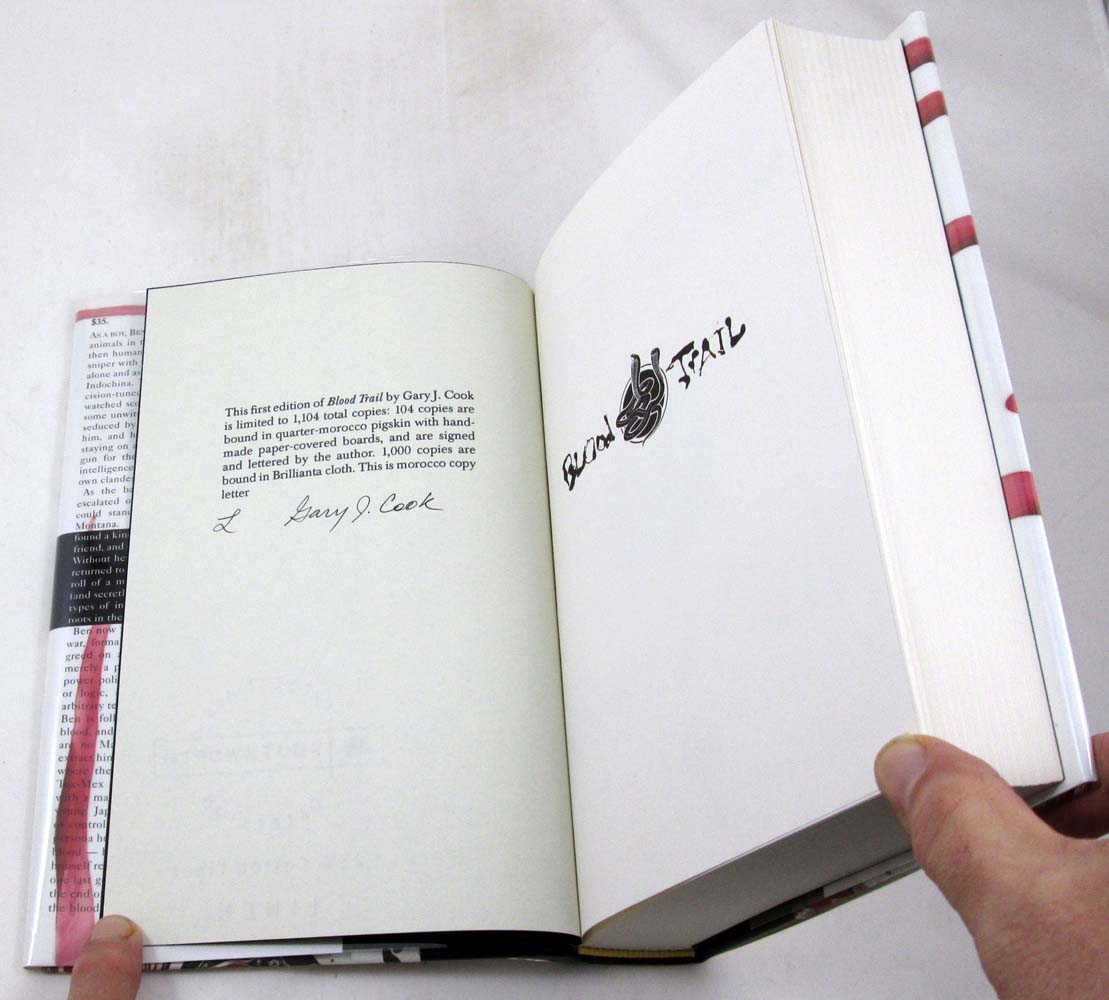 $35.
AS A BOY, BE
animals in
then human
sniper with
alone and as
Indochina.
cision-tune
watched sc
some unwit
seduced by
him, and h
staying on
gun for the
intelligence
own clande
As the ba
escalated o
could stan
Montana.
found a kin
friend, and
Without he
returned to
roll of a m
(and secretl
types of in
roots in the
Ben now
war, forma
greed on a
merely a p
power poli
or logic,
arbitrary re
Ben is foll
blood, and
are no M
extract him
where the
Tex-Mex
with a ma
young Jap
of control
persona he
blood —
himself re
one last g
the end o
the blood
This first edition of Blood Trail by Gary J. Cook
is limited to 1,104 total copies: 104 copies are
bound in quarter-morocco pigskin with hand-
made paper-covered boards, and are signed
and lettered by the author. 1,000 copies are
bound in Brillianta cloth. This is morocco copy
letter
L Gary J. Cook
BLOOD TRAIL